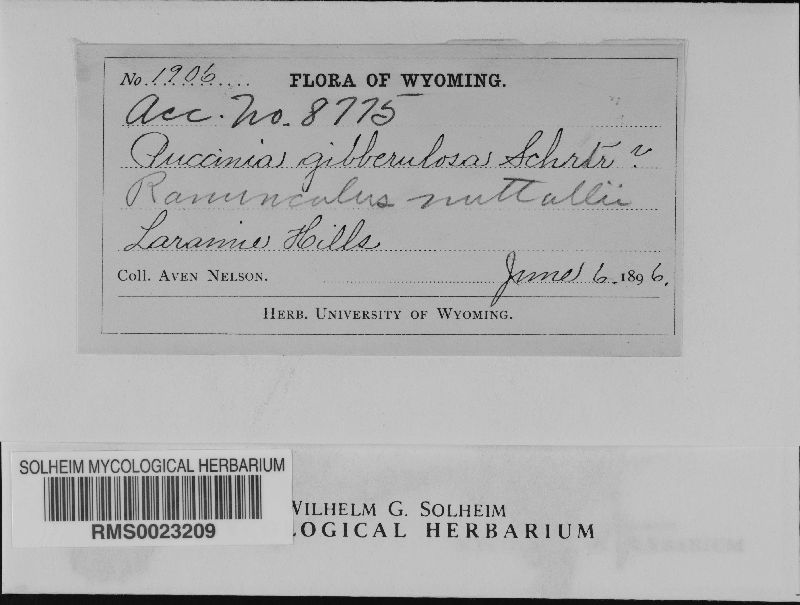 No. 1906 FLORA OF WYOMING.
Acc. No. 8775
Puccinia gibberulosa Schrtr ?
Ranunculus nuttallii
Laramie Hills
Coll. AVEN NELSON. June 6. 1896.
HERB. UNIVERSITY OF WYOMING.
SOLHEIM MYCOLOGICAL HERBARIUM
RMS0023209
WILHELM G. SOLHEIM
LOGICAL HERBARIUM